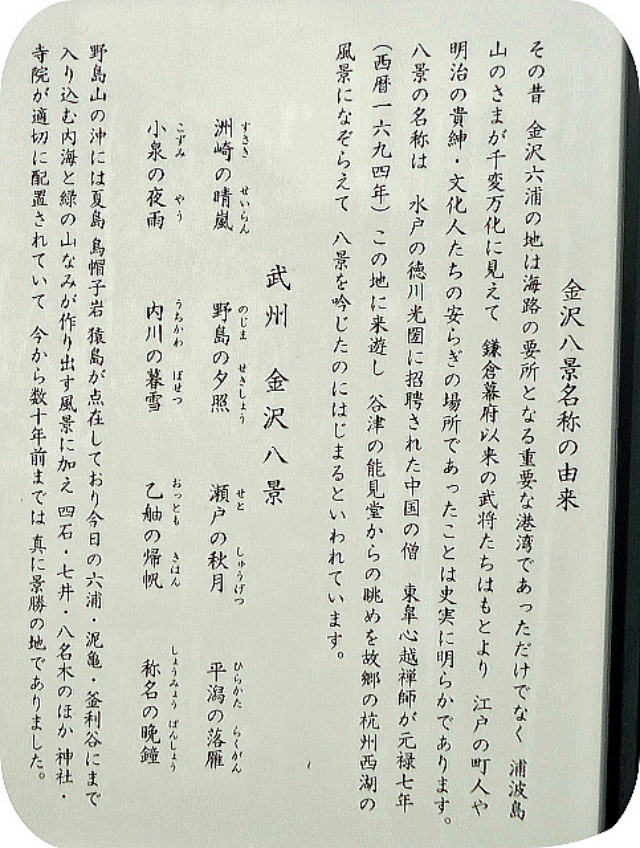 金沢八景名称の由来
その昔 金沢六浦の地は海路の要所となる重要な港湾であっただけでなく 浦波島
山のさまが千変万化に見えて 鎌倉幕府以来の武将たちはもとより 江戸の町人や
明治の貴紳・文化人たちの安らぎの場所であったことは史実に明らかであります。
八景の名称は 水戸の徳川光圀に招聘された中国の僧 東皐心越禅師が元禄七年
(西暦一六九四年)この地に来遊し 谷津の能見堂からの眺めを故郷の杭州西湖の
風景になぞらえて 八景を吟じたのにはじまるといわれています。
武州 金沢八景
すさき せいらん のじま せきしょう せと しゅうげつ ひらかた らくがん
洲崎の晴嵐 野島の夕照 瀬戸の秋月 平潟の落雁
こずみ やう うちかわ ぼせつ おっとも きはん しょうみょう ばんしょう
小泉の夜雨 内川の暮雪 乙舳の帰帆 称名の晩鐘
野島山の沖には夏島 烏帽子岩 猿島が点在しており今日の六浦・泥亀・釜利谷にまで
入り込む内海と緑の山なみが作り出す風景に加え 四石・七井・八名木のほか 神社・
寺院が適切に配置されていて 今から数十年前までは 真に景勝の地でありました。